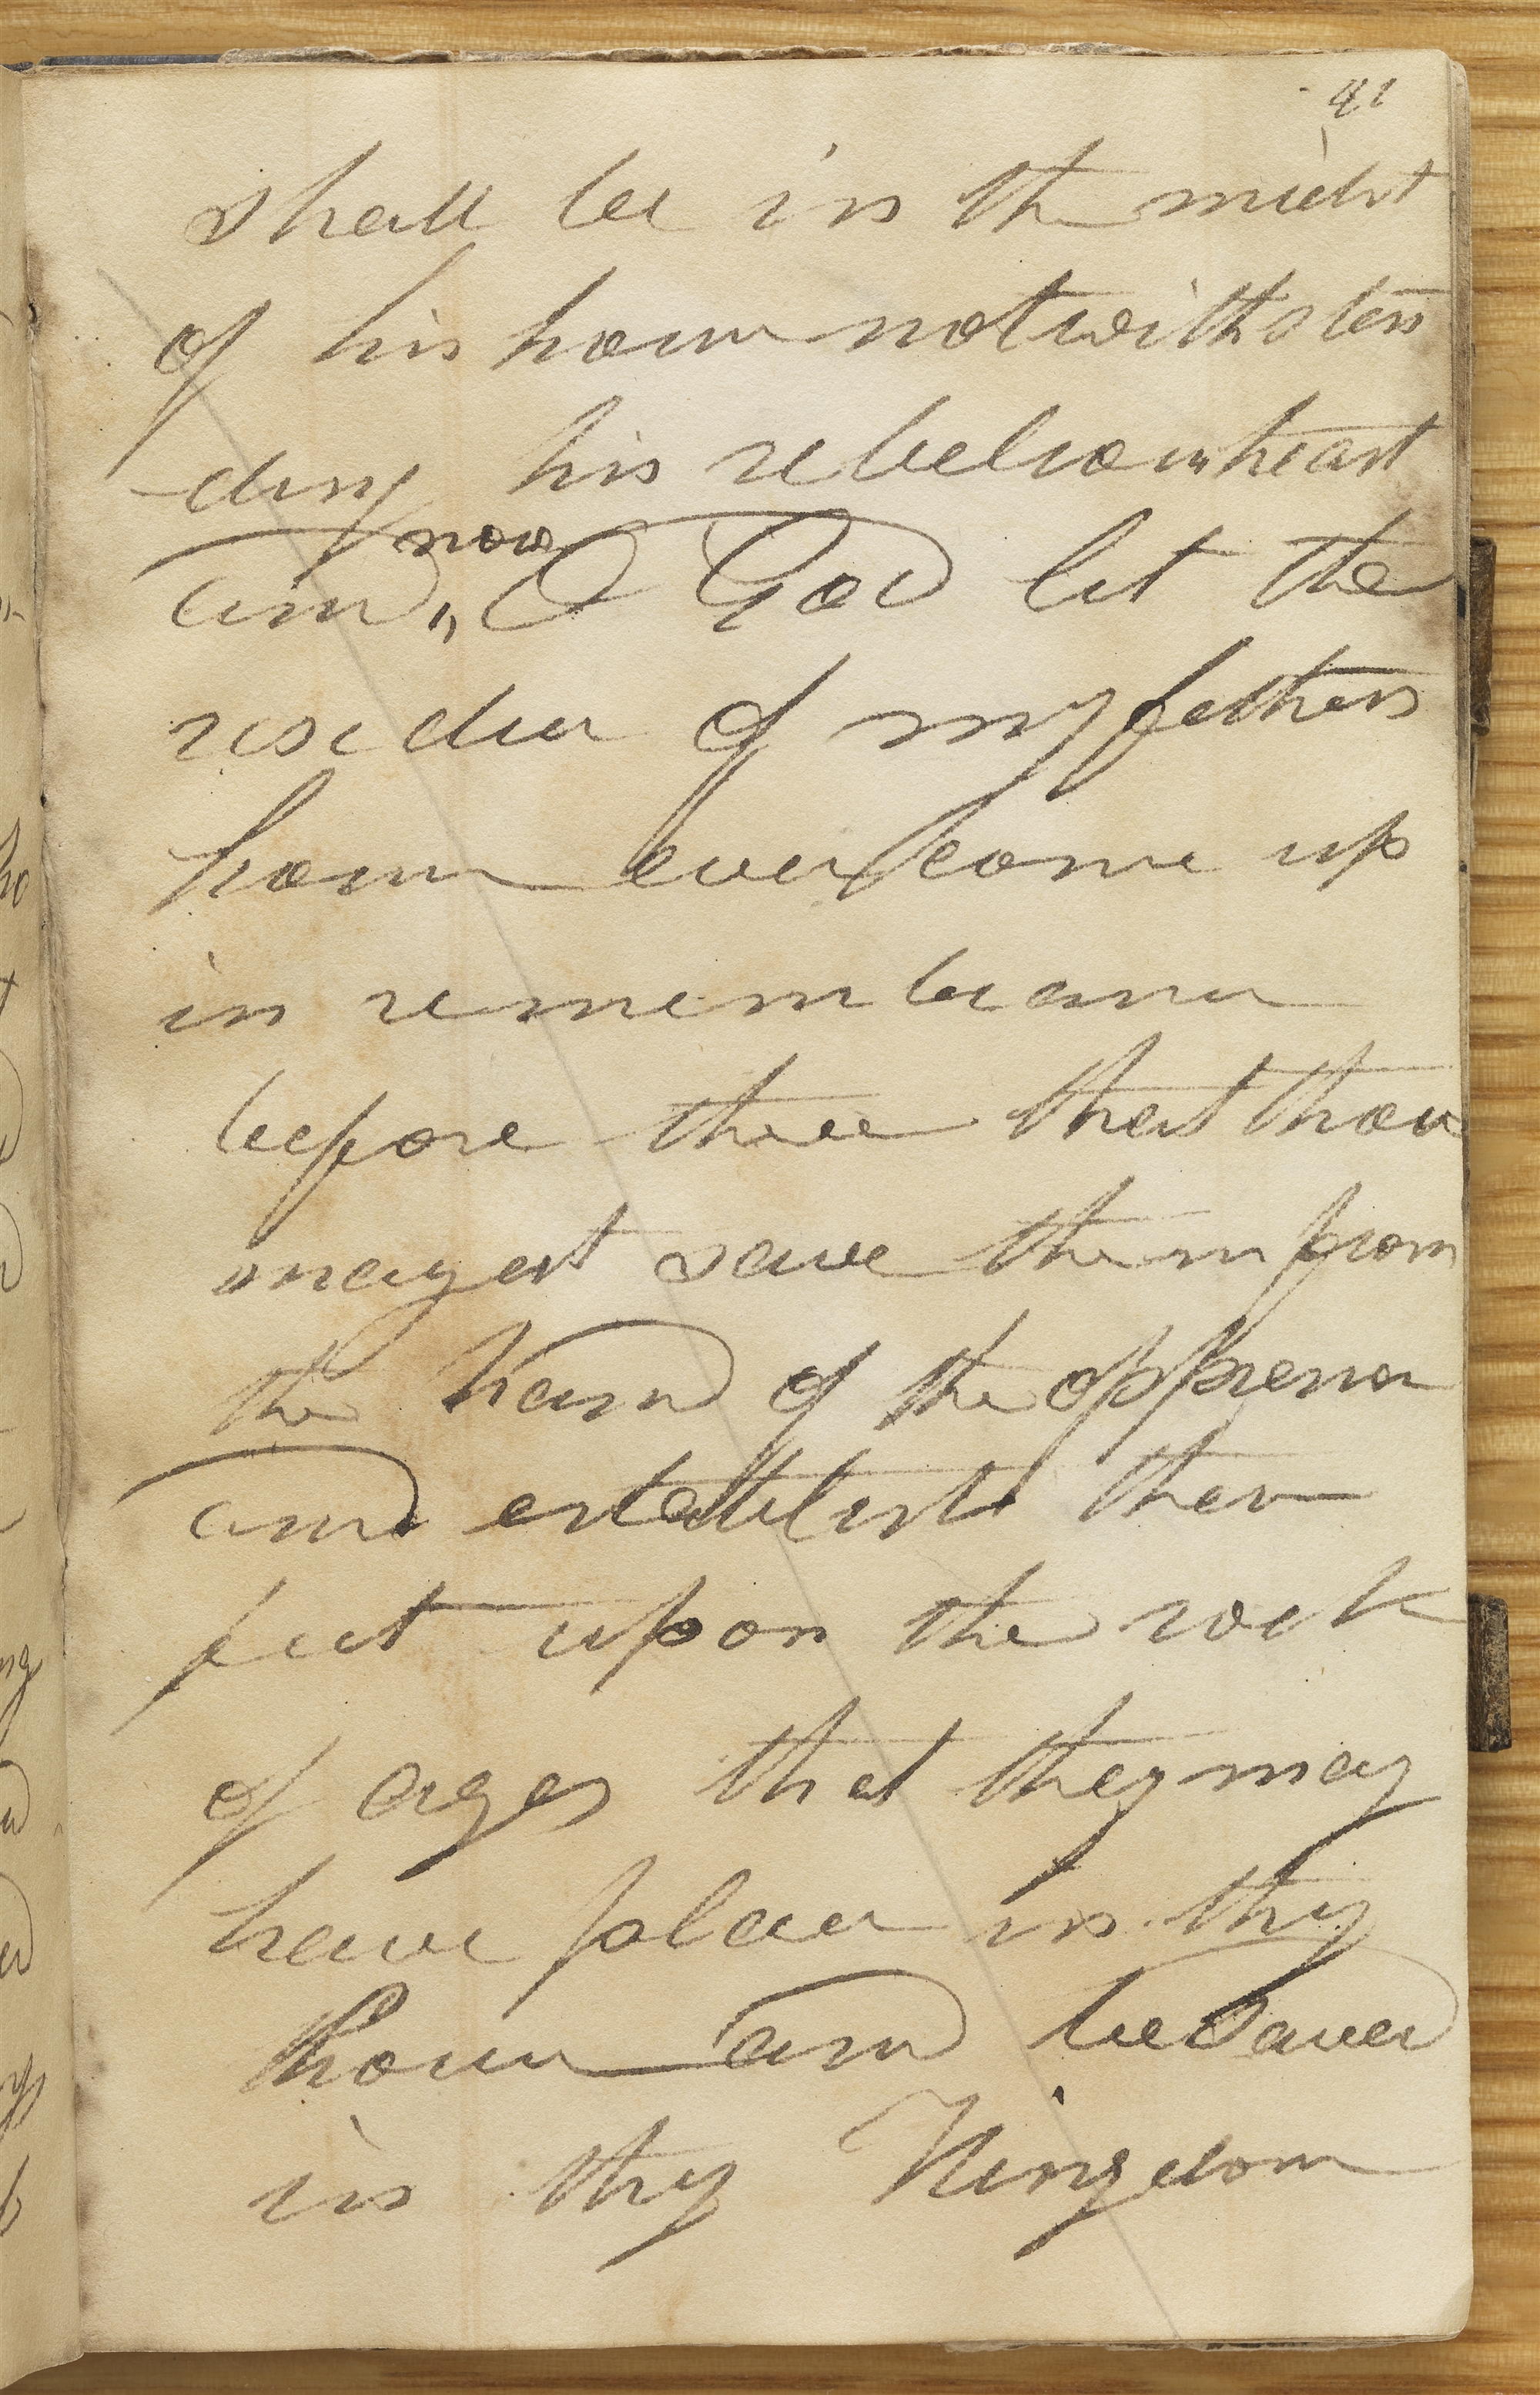 41
shall be in the midst
of his house notwithstan
ding his rebelious heart
and, now O God let the
residue of my fathers
house ever come up
in remembrance
before thee that thou
mayest save them from
the hand of the oppressor
and establish their
feet upon the rock
of ages that they may
have place in thy
house and be saved
in thy Kingdom